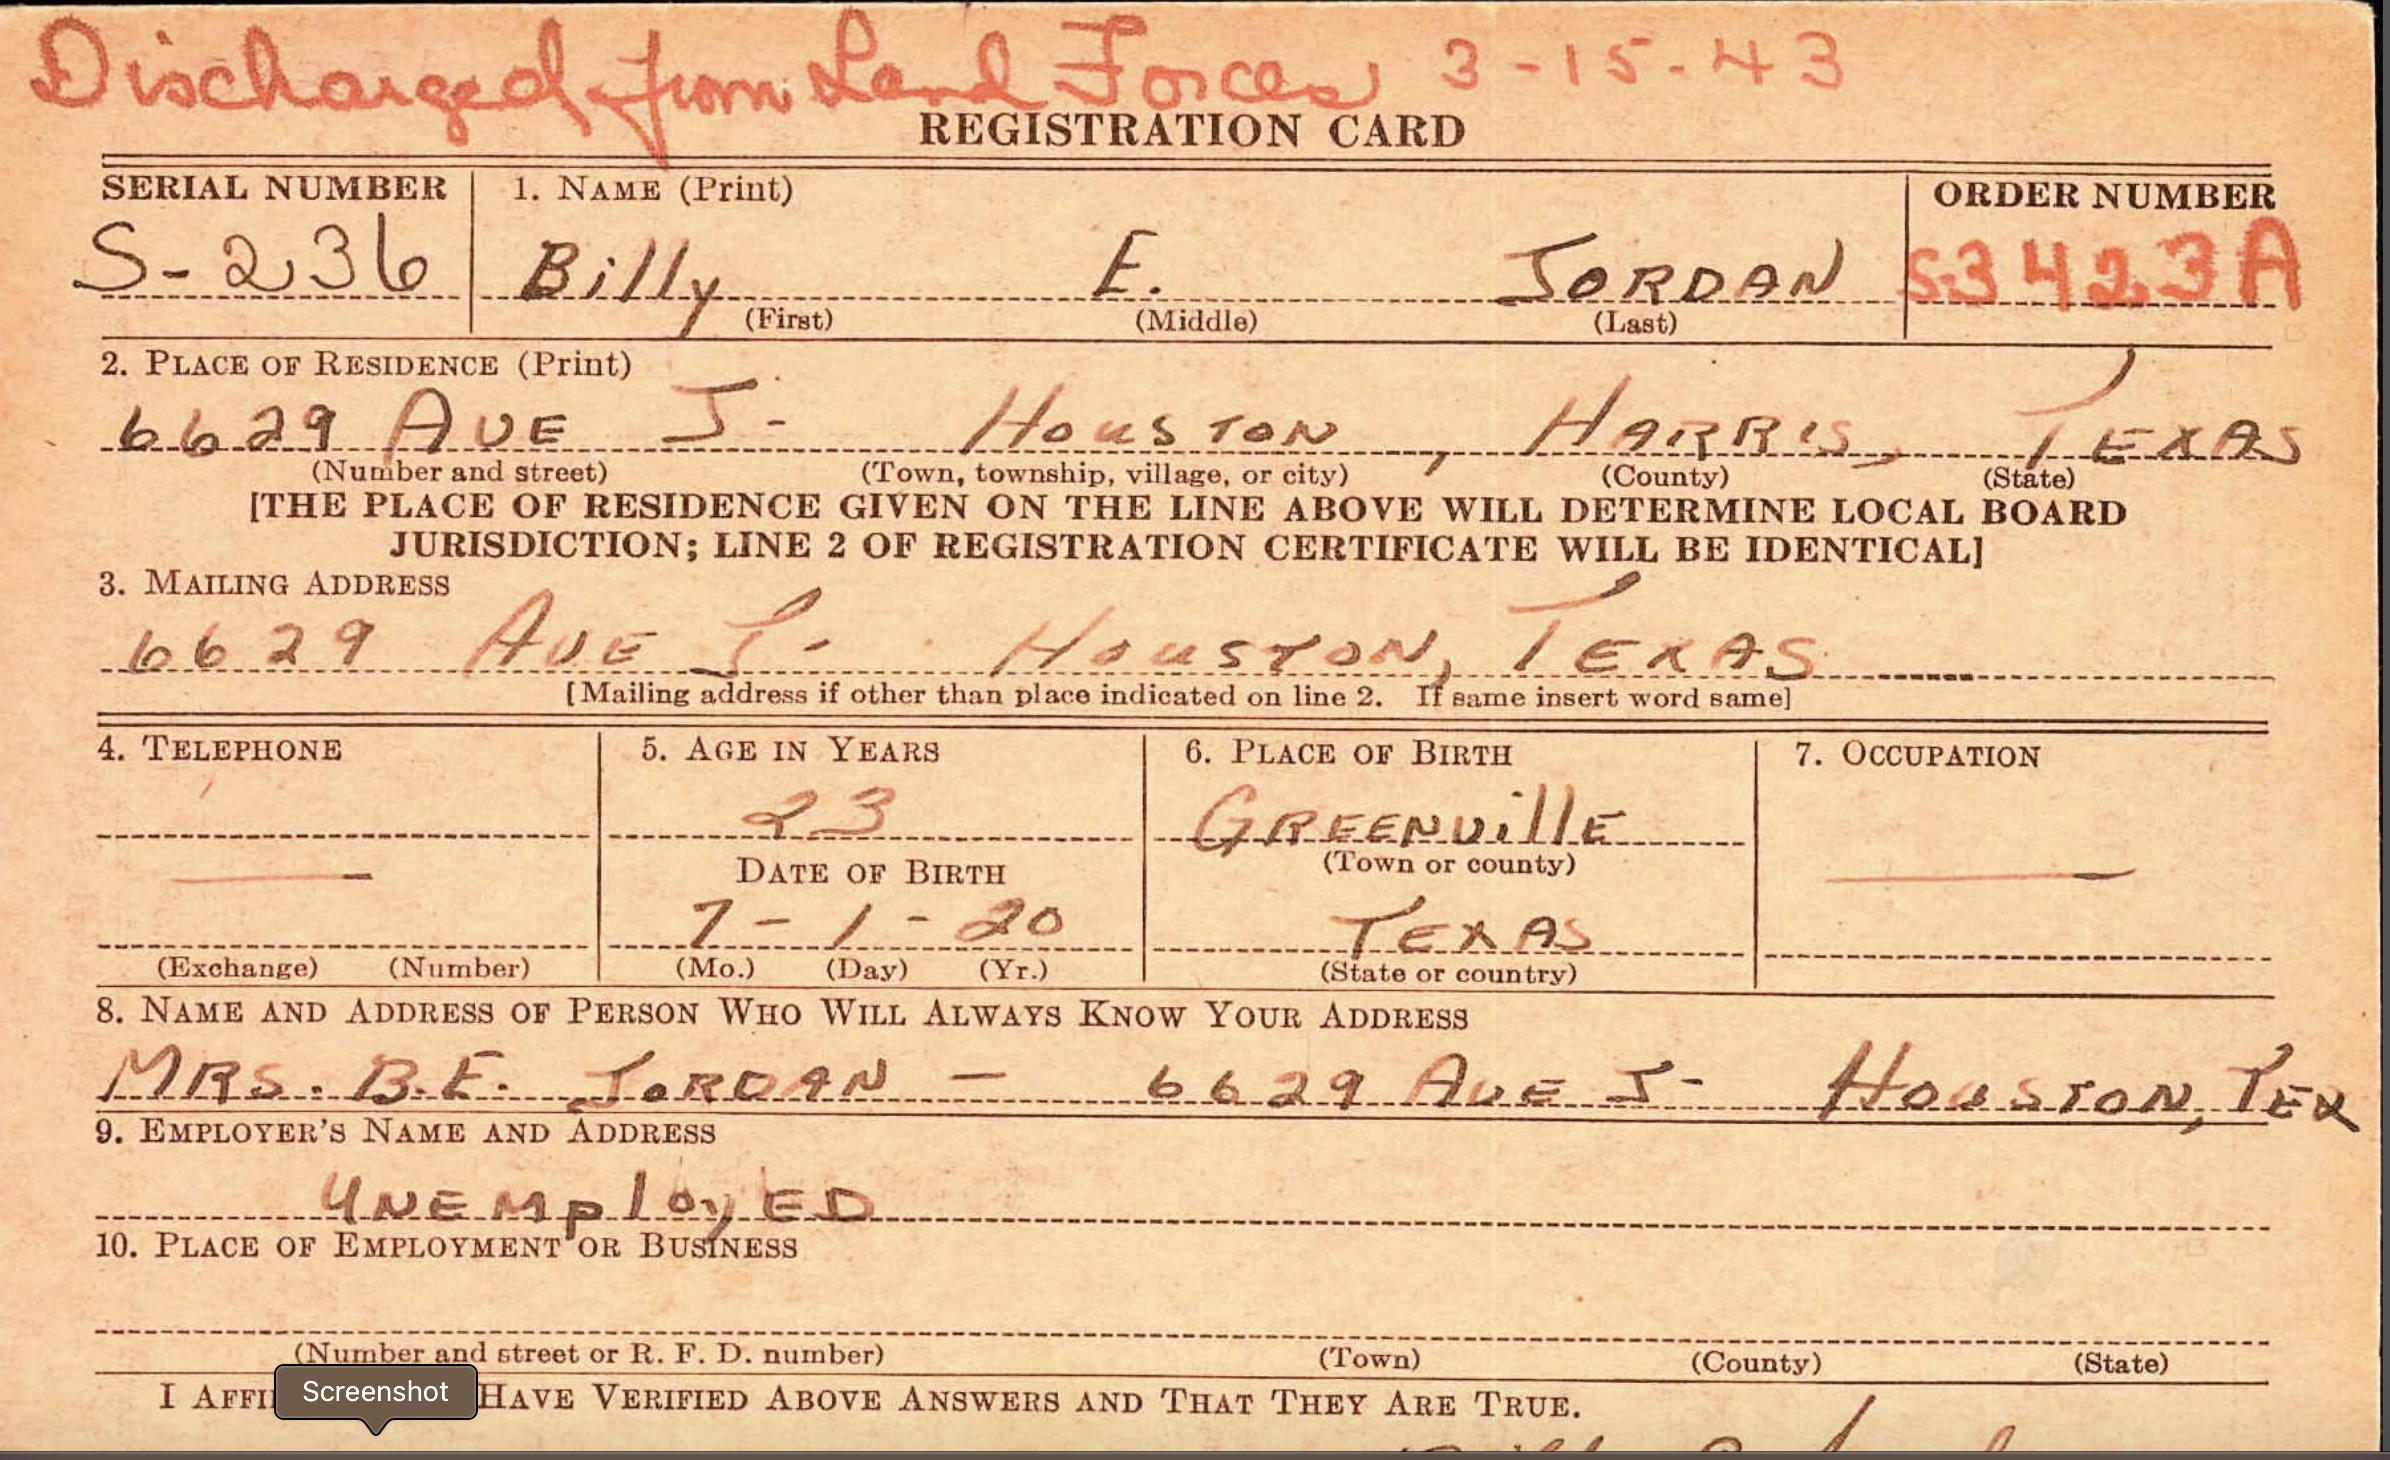 Discharged from Land Forces 3-15-43
REGISTRATION CARD
SERIAL NUMBER 1. NAME (Print) ORDER NUMBER
S-236 Billy E. JORDAN S-3423A
(First) (Middle) (Last)
2. PLACE OF RESIDENCE (Print)
6629 AVE J- HOUSTON, HARRIS, TEXAS
(Number and street) (Town, township, village, or city) (County) (State)
[THE PLACE OF RESIDENCE GIVEN ON THE LINE ABOVE WILL DETERMINE LOCAL BOARD
JURISDICTION; LINE 2 OF REGISTRATION CERTIFICATE WILL BE IDENTICAL]
3. MAILING ADDRESS
6629 AVE J- HOUSTON, TEXAS
[Mailing address if other than place indicated on line 2. If same insert word same]
4. TELEPHONE 5. AGE IN YEARS 6. PLACE OF BIRTH 7. OCCUPATION
23 GREENVillE
DATE OF BIRTH (Town or county)
7-1-20 TEXAS
(Exchange) (Number) (Mo.) (Day) (Yr.) (State or country)
8. NAME AND ADDRESS OF PERSON WHO WILL ALWAYS KNOW YOUR ADDRESS
MRS. B.E. JORDAN - 6629 AVE J- HOUSTON, TEX
9. EMPLOYER'S NAME AND ADDRESS
UNEMployED
10. PLACE OF EMPLOYMENT OR BUSINESS
(Number and street or R. F. D. number) (Town) (County) (State)
I AFFI HAVE VERIFIED ABOVE ANSWERS AND THAT THEY ARE TRUE.
Screenshot